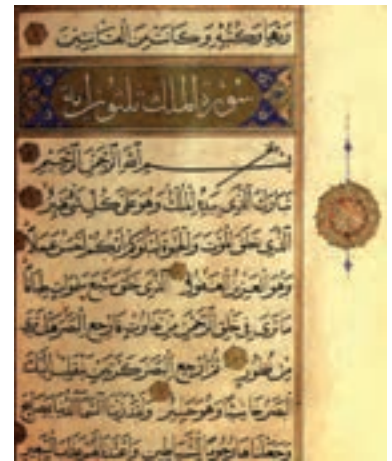 رَبِّهَا وَكُتُبِهِ وَكَانَتْ مِنَ الْقَانِتِينَ
سورة الملك ثلثون اية
بِسْمِ اللَّهِ الرَّحْمَنِ الرَّحِيمِ
تَبَارَكَ الَّذِي بِيَدِهِ الْمُلْكُ وَهُوَ عَلَى كُلِّ شَيْءٍ قَدِيرٌ
الَّذِي خَلَقَ الْمَوْتَ وَالْحَيَوةَ لِيَبْلُوَكُمْ أَيُّكُمْ أَحْسَنُ عَمَلًا
وَهُوَ الْعَزِيزُ الْغَفُورُ الَّذِي خَلَقَ سَبْعَ سَمَوَاتٍ طِبَاقًا
مَا تَرَى فِي خَلْقِ الرَّحْمَنِ مِنْ تَفَاوُتٍ فَارْجِعِ الْبَصَرَ هَلْ تَرَى
مِنْ فُطُورٍ ثُمَّ ارْجِعِ الْبَصَرَ كَرَّتَيْنِ يَنْقَلِبْ إِلَيْكَ
الْبَصَرُ خَاسِئًا وَهُوَ حَسِيرٌ وَلَقَدْ زَيَّنَّا السَّمَاءَ الدُّنْيَا بِمَصَابِيحَ
وَجَعَلْنَاهَا رُجُومًا لِلشَّيَاطِينِ وَأَعْتَدْنَا لَهُمْ عَذَابَ السَّعِيرِ